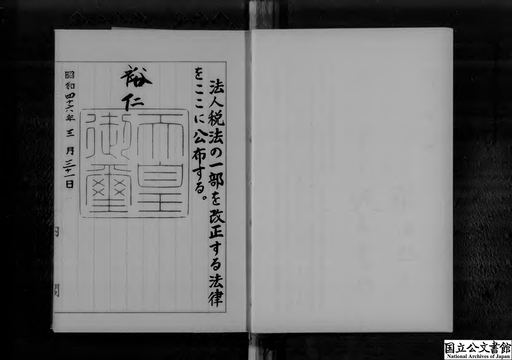 法人税法の一部を改正する法律
をここに公布する。
裕仁
天皇
御璽
昭和四十六年三月三十一日
国立公文書館
National Archives of Japan